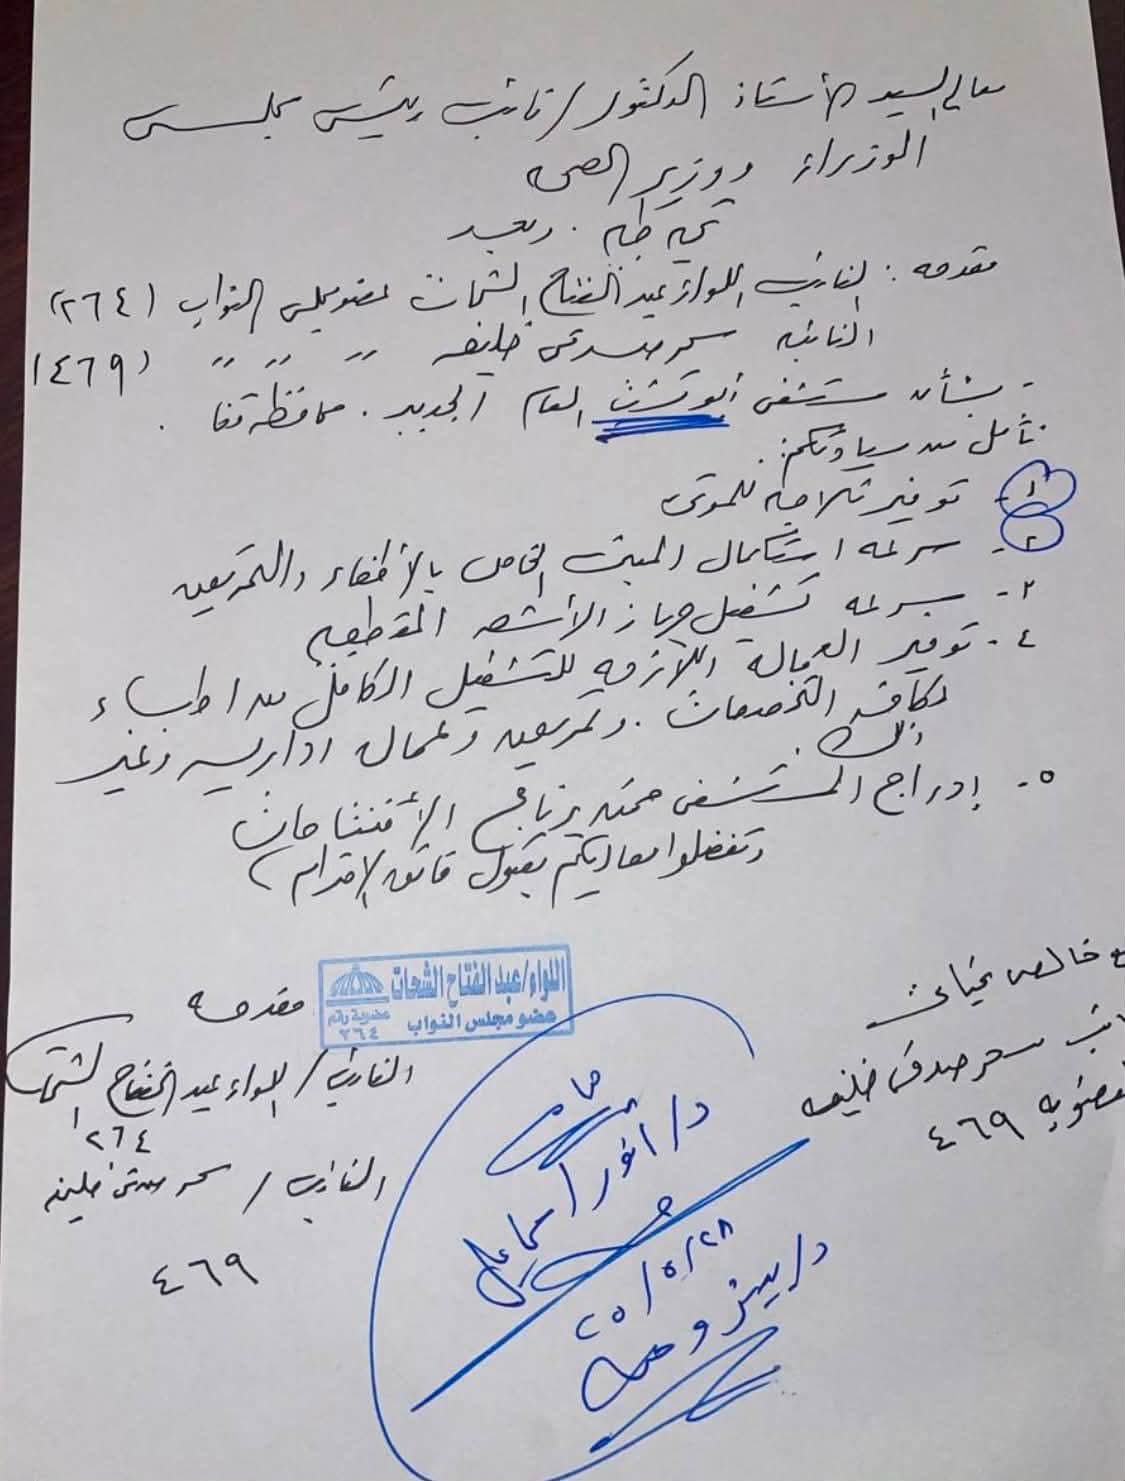 معالي السيد الأستاذ الدكتور / نائب رئيس مجلس
الوزراء ووزير الصحه
تحيه طيبه . وبعد
مقدمه : النائب اللواء عبد الفتاح الشحات عضو مجلس النواب (٢٦٤)
النائبه سحر صدقى خليفه 〃 〃 〃 (٤٦٩)
- بشأن مستشفى أبو تشت العام الجديد . محافظة قنا .
نأمل من سيادتكم :
١- توفير ثلاجه للموتى
٢- سرعه استكمال المبنى الخاص بالأطباء والتمريض
٣- سرعه تشغيل جهاز الأشعه المقطعيه
٤- توفير العماله اللازمه للتشغيل الكامل من اطباء
لكافة التخصصات . وتمريض وعمال اداريه وغير
ذلك .
٥- إدراج المستشفى ضمن برنامج الأفتتاحات
وتفضلوا معاليكم بقبول فائق الاحترام ،
اللواء/ عبد الفتاح الشحات
عضو مجلس النواب
عضوية رقم
٢٦٤
مقدمه
النائب / اللواء عبد الفتاح الشحات
٢٦٤
النائب / سحر صدقى خليفه
٤٦٩
خالص تحياتى
سحر صدقى خليفه
٤٦٩
هام
د/ أنور اسماعيل
٢٥/٥/٢٨
د/ بيتر وجيه